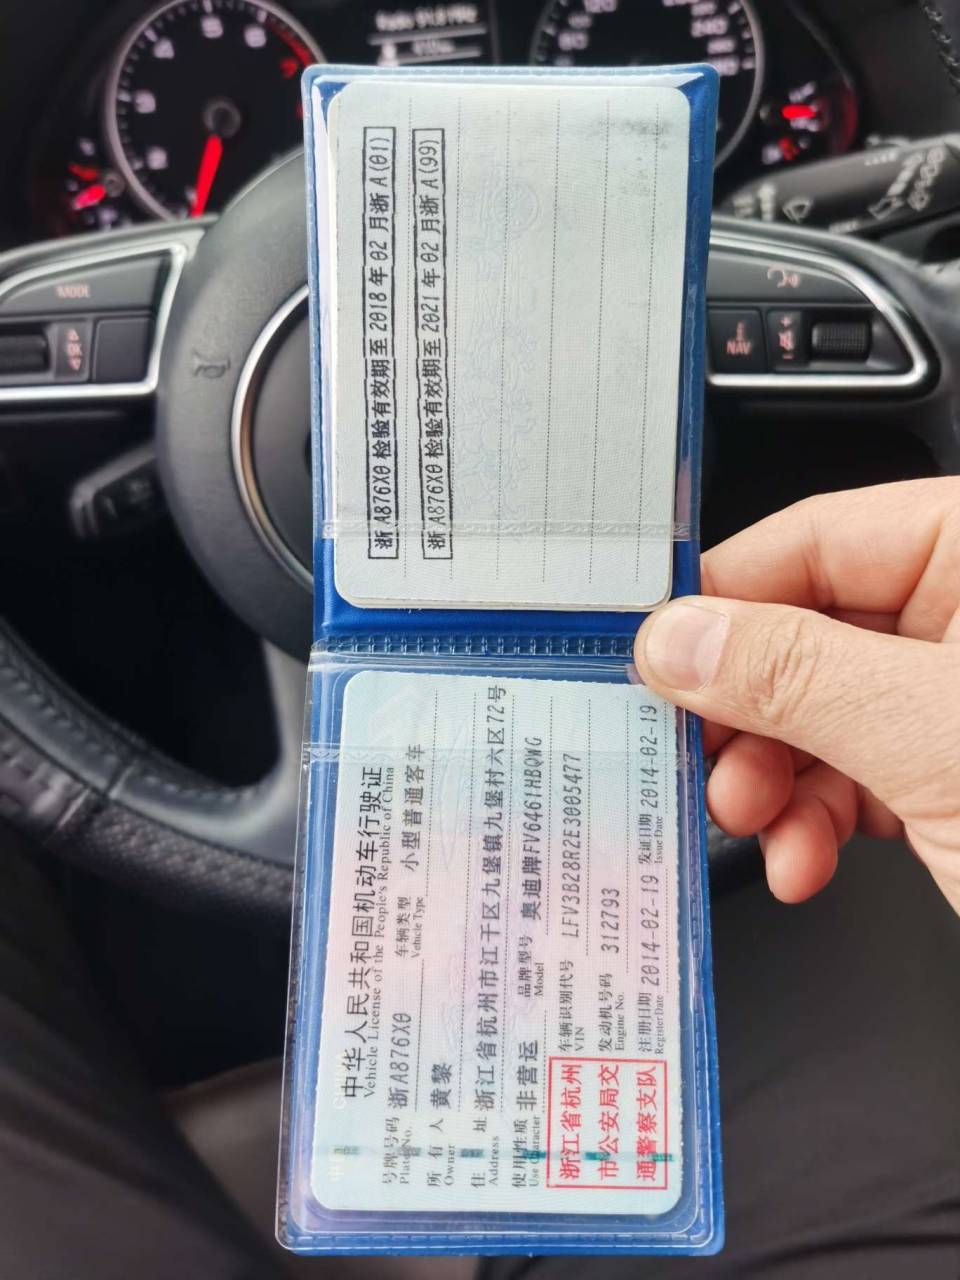 浙A876X0检验有效期至2018年02月浙A(01)
浙A876X0检验有效期至2021年02月浙A(99)
中华人民共和国机动车行驶证
Vehicle License of the People's Republic of China
号牌号码 浙A876X0 车辆类型 小型普通客车
Plate No. Vehicle Type
所有人 黄黎
Owner
住址 浙江省杭州市江干区九堡镇九堡村六区72号
Address
使用性质 非营运 品牌型号 奥迪牌FV6461HBQWG
Use Character Model
浙江省杭州
市公安局交
通警察支队
车辆识别代号 LFV3B28R2E3005477
VIN
发动机号码 312793
Engine No.
注册日期 2014-02-19 发证日期 2014-02-19
Register Date Issue Date
MODE
NAV